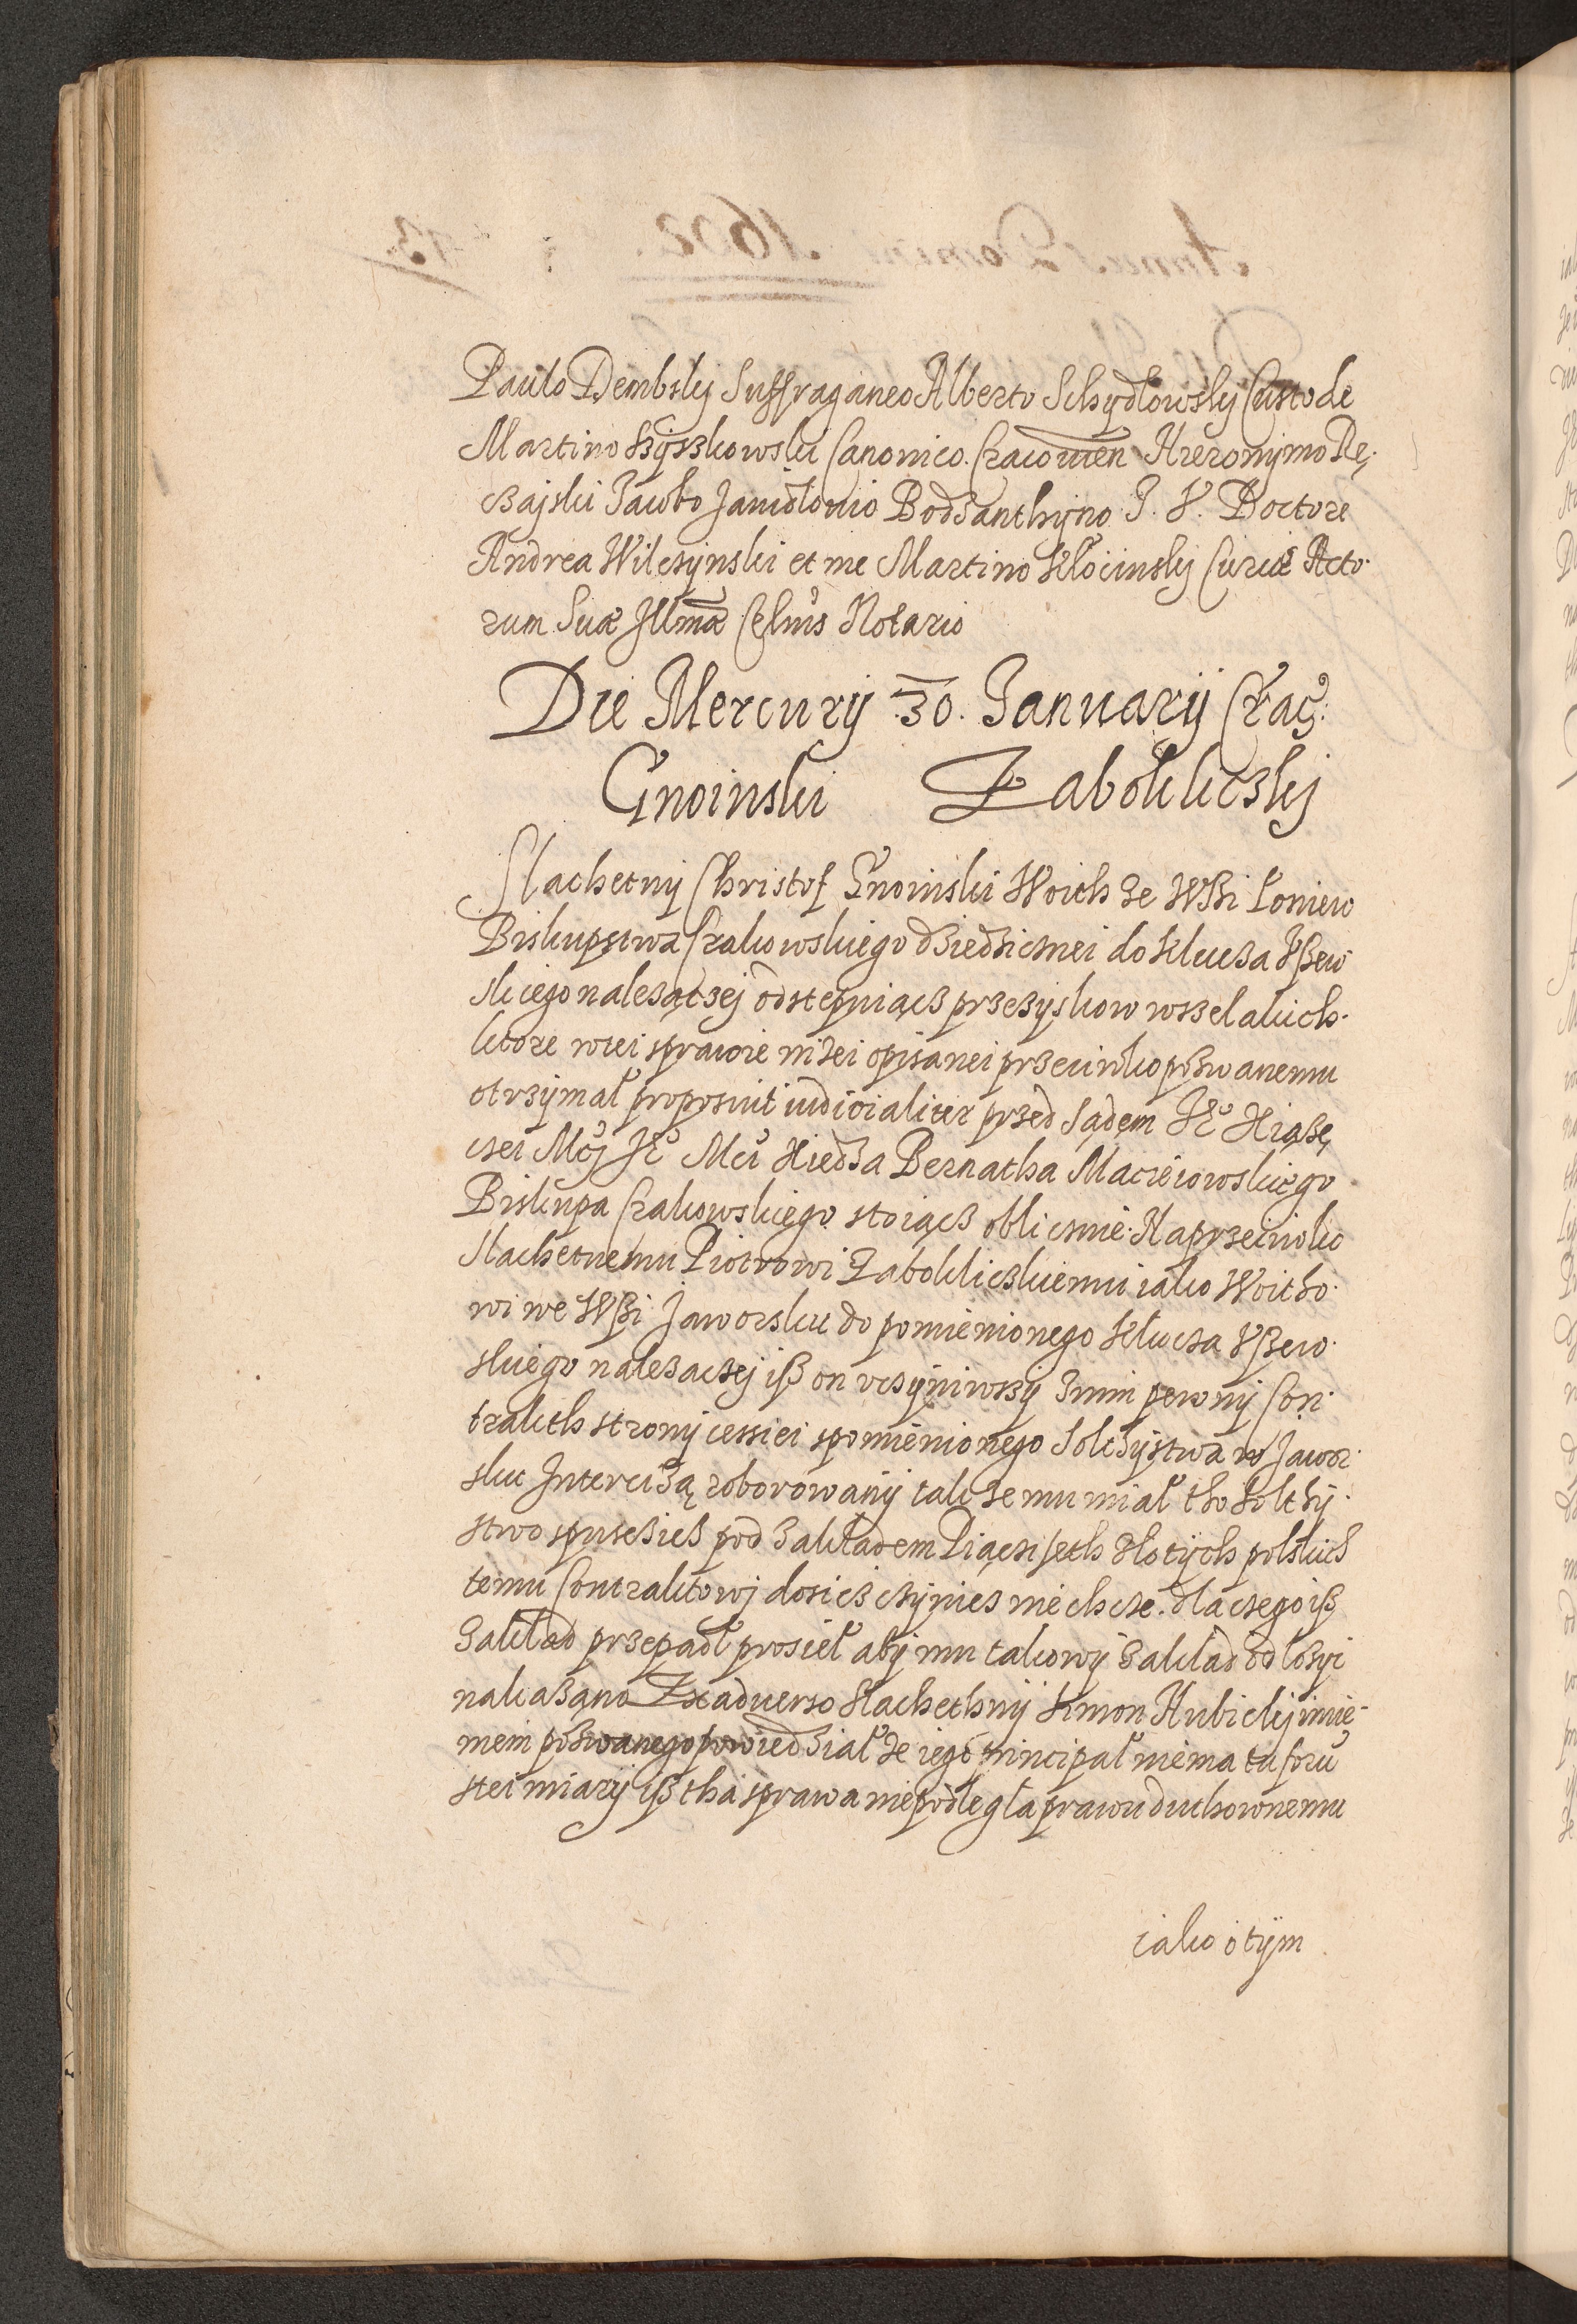 Paulo Dembsky Suffraganeo Alberto Schydłowsky Custode
Martino Szyszkowski Canonico. Cracouien Hieronymo Re,
czajski Jacobo Janidłouio Bodzanthyno J. V. Doctore
Andrea Wilczynski et me Martino Kłocinsky Curiæ Acto
rum Suæ Illmæ Celnis Notario
Die Mercurij 30. Januarij Crac:
Gnoinski Zabokliczky
Slachetny Christof Gnoinski Woith ze Wszi Loniew
Biskupstwa Crakowskiego dziedzicznei do klucza Uszew
skiego należączej odstępuiącz przezyskow wszelakich
ktore wtei sprawie niżei opisanei przeciwko pozwanemu
otrzymał proposuit iudicialiter przed Sądem Je° Xiąze
czei Mczj Je° Mci Xiedza Bernatha Macieiowskiego
Biskupa Crakowskiego stoiącz oblicznie. Naprzeciwko
slachetnemu Piotrowi Zaboklickiemu iako Woitho
wi we Wszi Jaworsku do pomienionego klucza Uszew
skiego nalezaczej isz on uczyniwszy znim pewny Con
trakth strony cessiei spomienionego Soltystwa w Jawor
sku Intercizą roborowany tak ze mu miał tho Solthy
stwo spuscicz pod zakładem Piączi seth złotych polskich
temu Contraktowj dosicz czynicz nie chcze. dla czego isz
zakład przepadł prosieł aby mu takowy zakład odłozyc
nakazano Ex aduerso slachethny Simon Kubicky imie
niem pozwanego powiedział ze iego principał niema tu foru
stei miary isz tha sprawa niepodległa prawu duchownemu
iako o tym